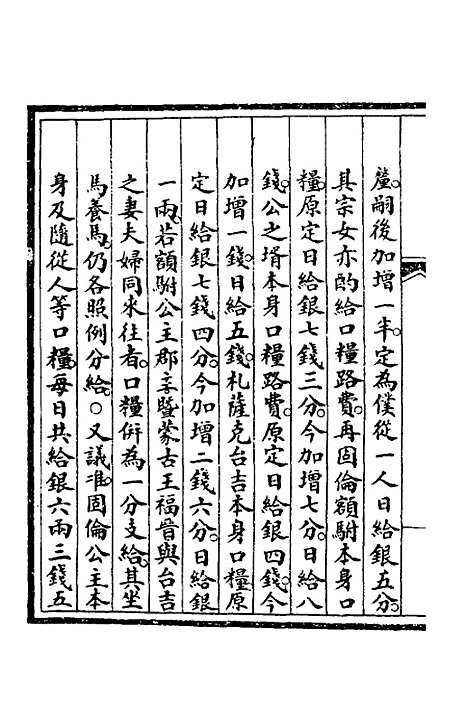 釐。嗣後加增一半。定為僕從一人日給銀五分。
其宗女亦酌給口糧路費。再固倫額駙本身口
糧。原定日給銀七錢三分。今加增七分。日給八
錢。公之壻本身口糧路費。原定日給銀四錢。今
加增一錢。日給五錢。札薩克台吉本身口糧原
定日給銀七錢四分。今加增二錢六分。日給銀
一兩。若額駙公主郡主暨蒙古王福晉與台吉
之妻夫婦同來往者。口糧併為一分支給。其坐
馬養馬。仍各照例分給。○又議准。固倫公主本
身及隨從人等口糧。每日共給銀六兩三錢五